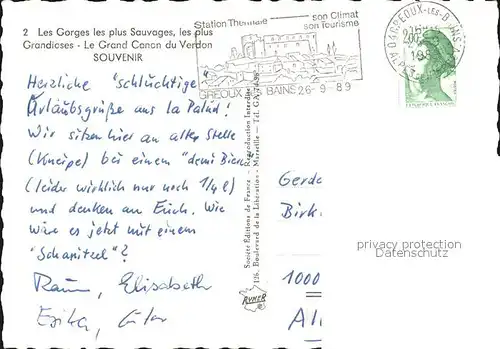 2 Les Gorges les plus Sauvages, les plus
Grandioses - Le Grand Canon du Verdon
SOUVENIR
Station Thermale son Climat
son Tourisme
GREOUX LES BAINS 26-9-89
04 GREOUX-LES-BAINS
Herzliche "schluchtige"
Urlaubsgrüße aus la Palud!
Wir sitzen hier an alter Stelle
(Kneipe) bei einem "demi Bière"
(leider wirklich nur noch 1/4 l)
und denken an Euch. Wie
wäre es jetzt mit einem
"Schanitzel"?
Elisabeth
Erika,
Société Editions de France - Reproduction Interdite
126, Boulevard de la Libération - Marseille - Tél.
RYNER
Gerda
Birk
1000
privacy protection
Datenschutz